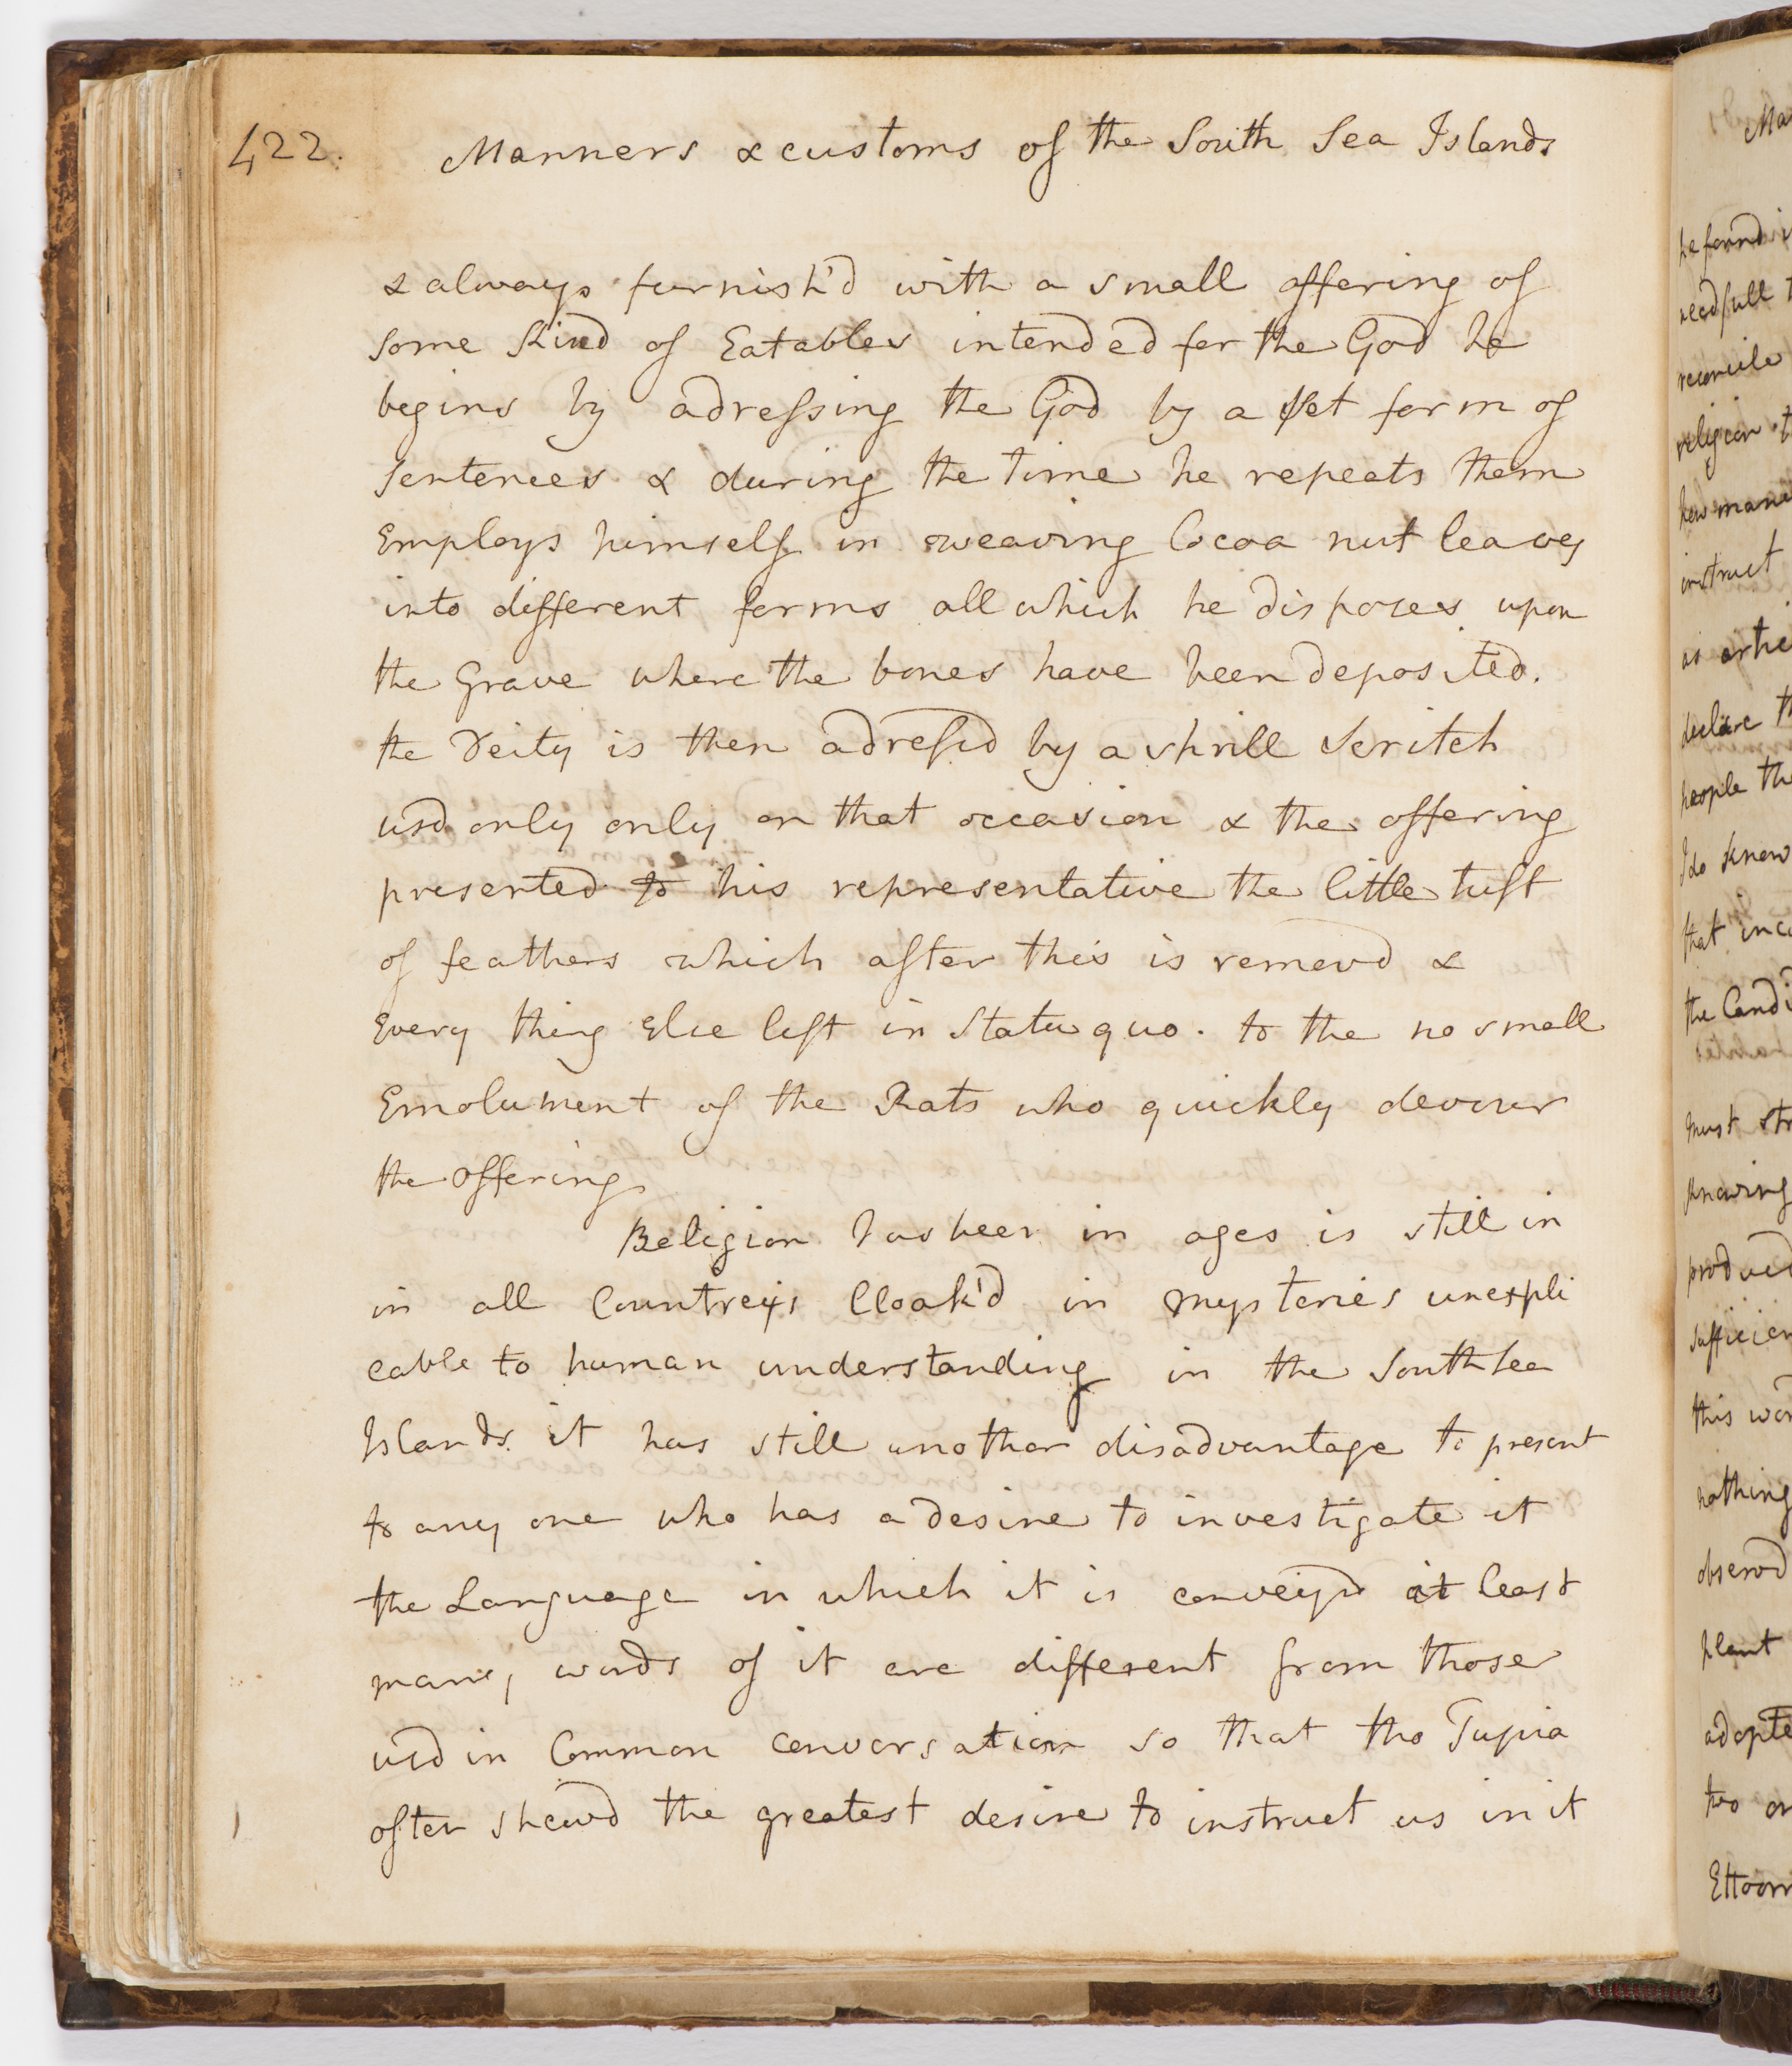 422.
Manners & customs of the South Sea Islands
& always furnish'd with a small offering of
some Kind of Eatables intended for the God he
begins by adressing the God by a set form of
sentences & during the time he repeats them
Employs himself in weaving Cocoa nut leaves
into different forms all which he disposes upon
the Grave where the bones have been deposited.
the Deity is then adressd by a shrill Scritch
usd only only on that occasion & the offering
presented to his representative the little tuft
of feathers which after this is removd &
Every thing Else left in Statu quo. to the no small
Emolument of the Rats who quickly devour
the offering
Religion has been in ages is still in
in all Countreys Cloak'd in mysteries unexpli
cable to human understanding in the South Sea
Islands it has still another disadvantage to present
to any one who has a desire to investigate it
the Language in which it is conveyd at least
many words of it are different from those
usd in Common conversation so that tho Tupia
often shewd the greatest desire to instruct us in it
he found i
reconcile
religion
how
instruct
as
declare th
people the
I do know
that
the Candi
must
knowing
produced
sufficien
this wor
nothing
observd
plant
adopte
two or